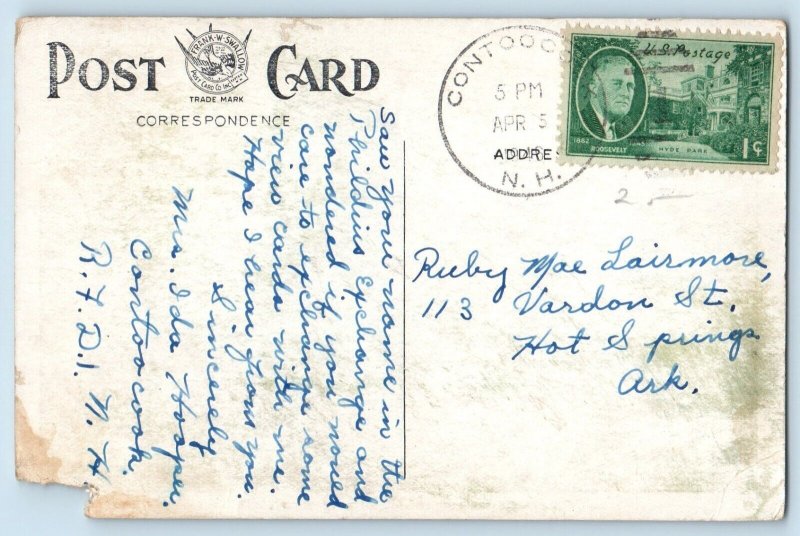 POST CARD
FRANK·W·SWALLOW
POST CARD CO INC
TRADE MARK
CORRESPONDENCE
Saw your name in the
Phildius Exchange and
wondered if you would
care to exchange some
view cards with me.
Hope I hear from you.
Sincerely
Mrs. Ida Hooper.
Contoocook.
R.F.D.1. N.H
5 PM
APR 5
N.H.
U.S. Postage
1882
ROOSEVELT
HYDE PARK
1¢
2
Ruby Mae Lairmore,
113 Vardon St.
Hot Springs
Ark.